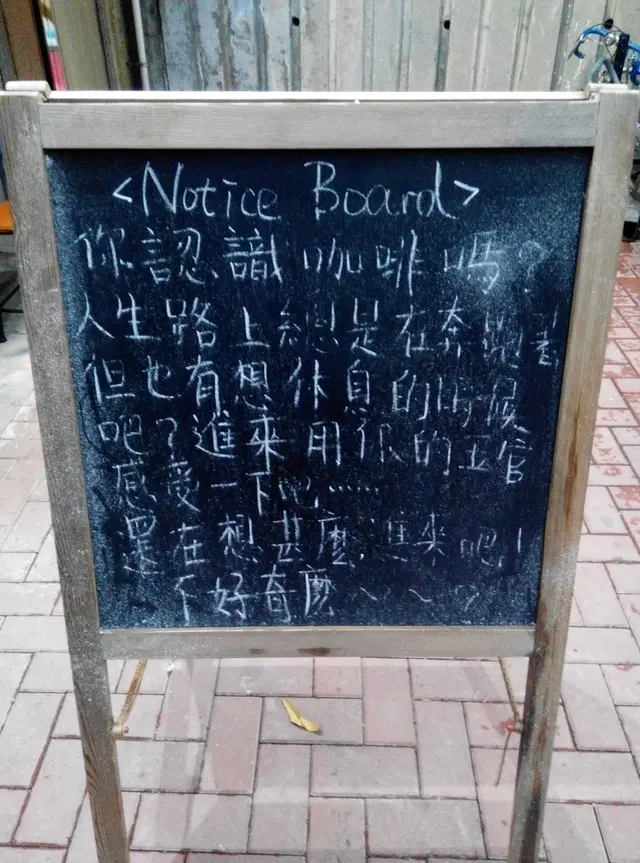 <Notice Board>
你認識咖啡嗎?
人生路上總是在奔跑著
但也有想休息的時候
吧?進來用你的五官
感受一下吧……
還在想甚麼,進來吧!
不好奇麼~~?